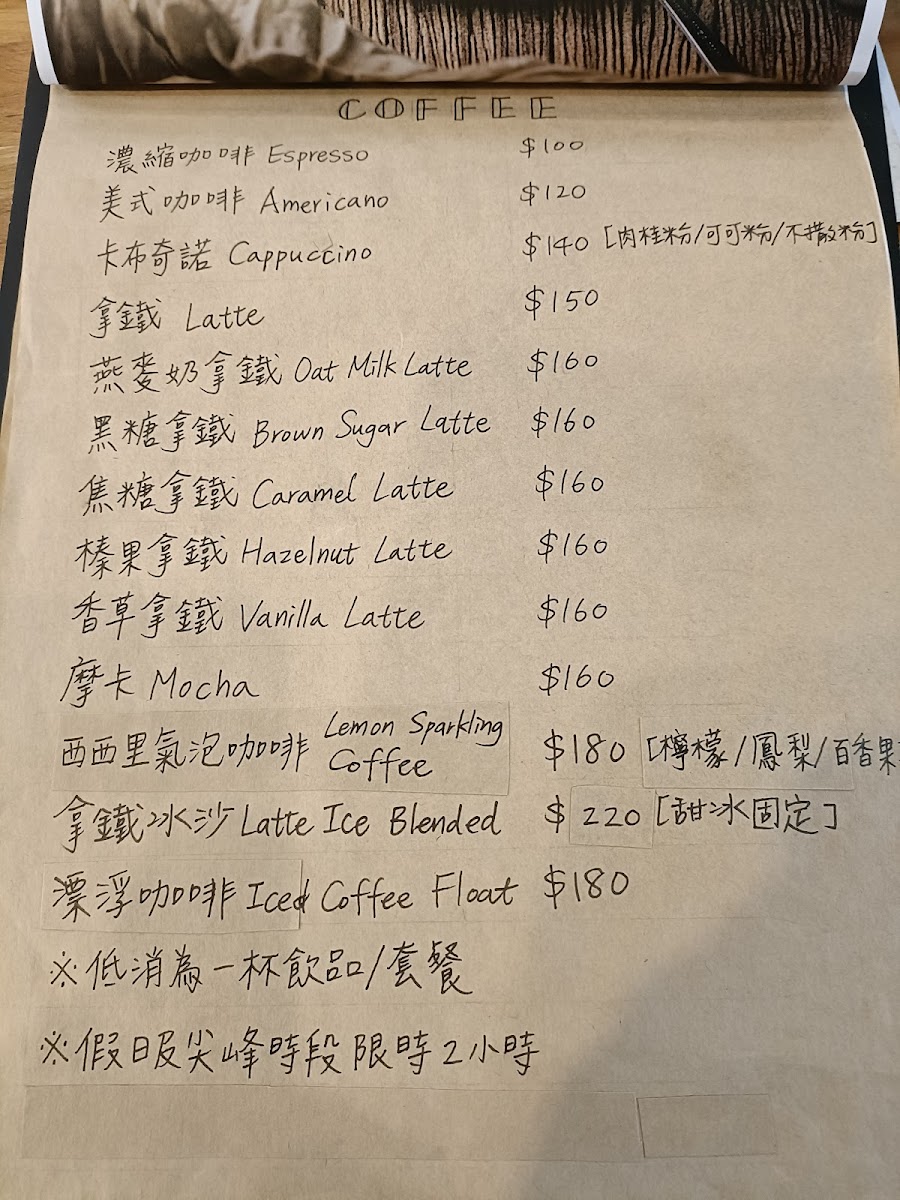 COFFEE
濃縮咖啡 Espresso $100
美式咖啡 Americano $120
卡布奇諾 Cappuccino $140 [肉桂粉/可可粉/不撒粉]
拿鐵 Latte $150
燕麥奶拿鐵 Oat Milk Latte $160
黑糖拿鐵 Brown Sugar Latte $160
焦糖拿鐵 Caramel Latte $160
榛果拿鐵 Hazelnut Latte $160
香草拿鐵 Vanilla Latte $160
摩卡 Mocha $160
西西里氣泡咖啡 Lemon Sparkling Coffee $180 [檸檬/鳳梨/百香果
拿鐵冰沙 Latte Ice Blended $220 [甜冰固定]
漂浮咖啡 Iced Coffee Float $180
※低消為一杯飲品/套餐
※假日及尖峰時段限時2小時